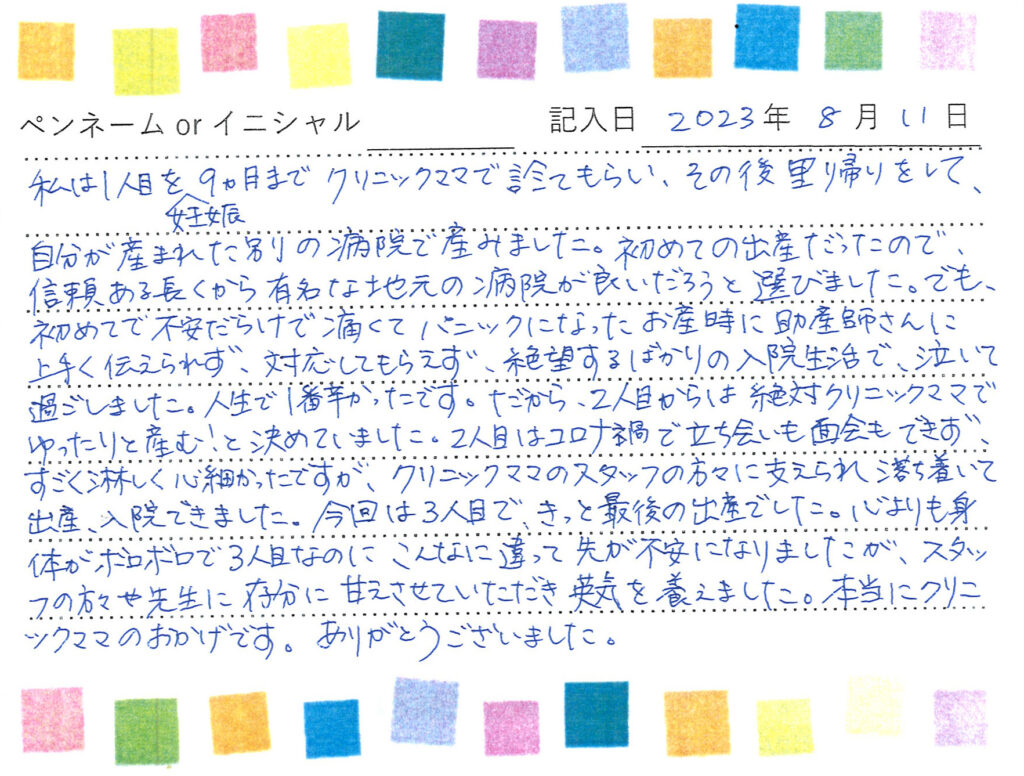 ペンネーム or イニシャル 記入日 2023年 8月 11日
私は1人目を9ヵ月までクリニックママで診てもらい、その後里帰りをして、
妊娠
自分が産まれた別の病院で産みました。初めての出産だったので、
信頼ある長くから有名な地元の病院が良いだろうと選びました。でも、
初めてで不安だらけで痛くてパニックになったお産時に助産師さんに
上手く伝えられず、対応してもらえず、絶望するばかりの入院生活で、泣いて
過ごしました。人生で1番辛かったです。だから、2人目からは絶対クリニックママで
ゆったりと産む!と決めていました。2人目はコロナ禍で立ち会いも面会もできず、
すごく淋しく心細かったですが、クリニックママのスタッフの方々に支えられ落ち着いて
出産、入院できました。今回は3人目で、きっと最後の出産でした。心よりも身
体がボロボロで3人目なのにこんなに違って先が不安になりましたが、スタッ
フの方々や先生に存分に甘えさせていただき英気を養えました。本当にクリニ
ックママのおかげです。ありがとうございました。